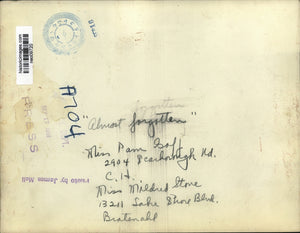 A704
"Almost forgotten"
Miss Pam Goff
2904 Scarborough Rd.
C. H.
Miss Mildred Stone
13211 Lake Shore Blvd.
Bratenahl
Photo by James Meli